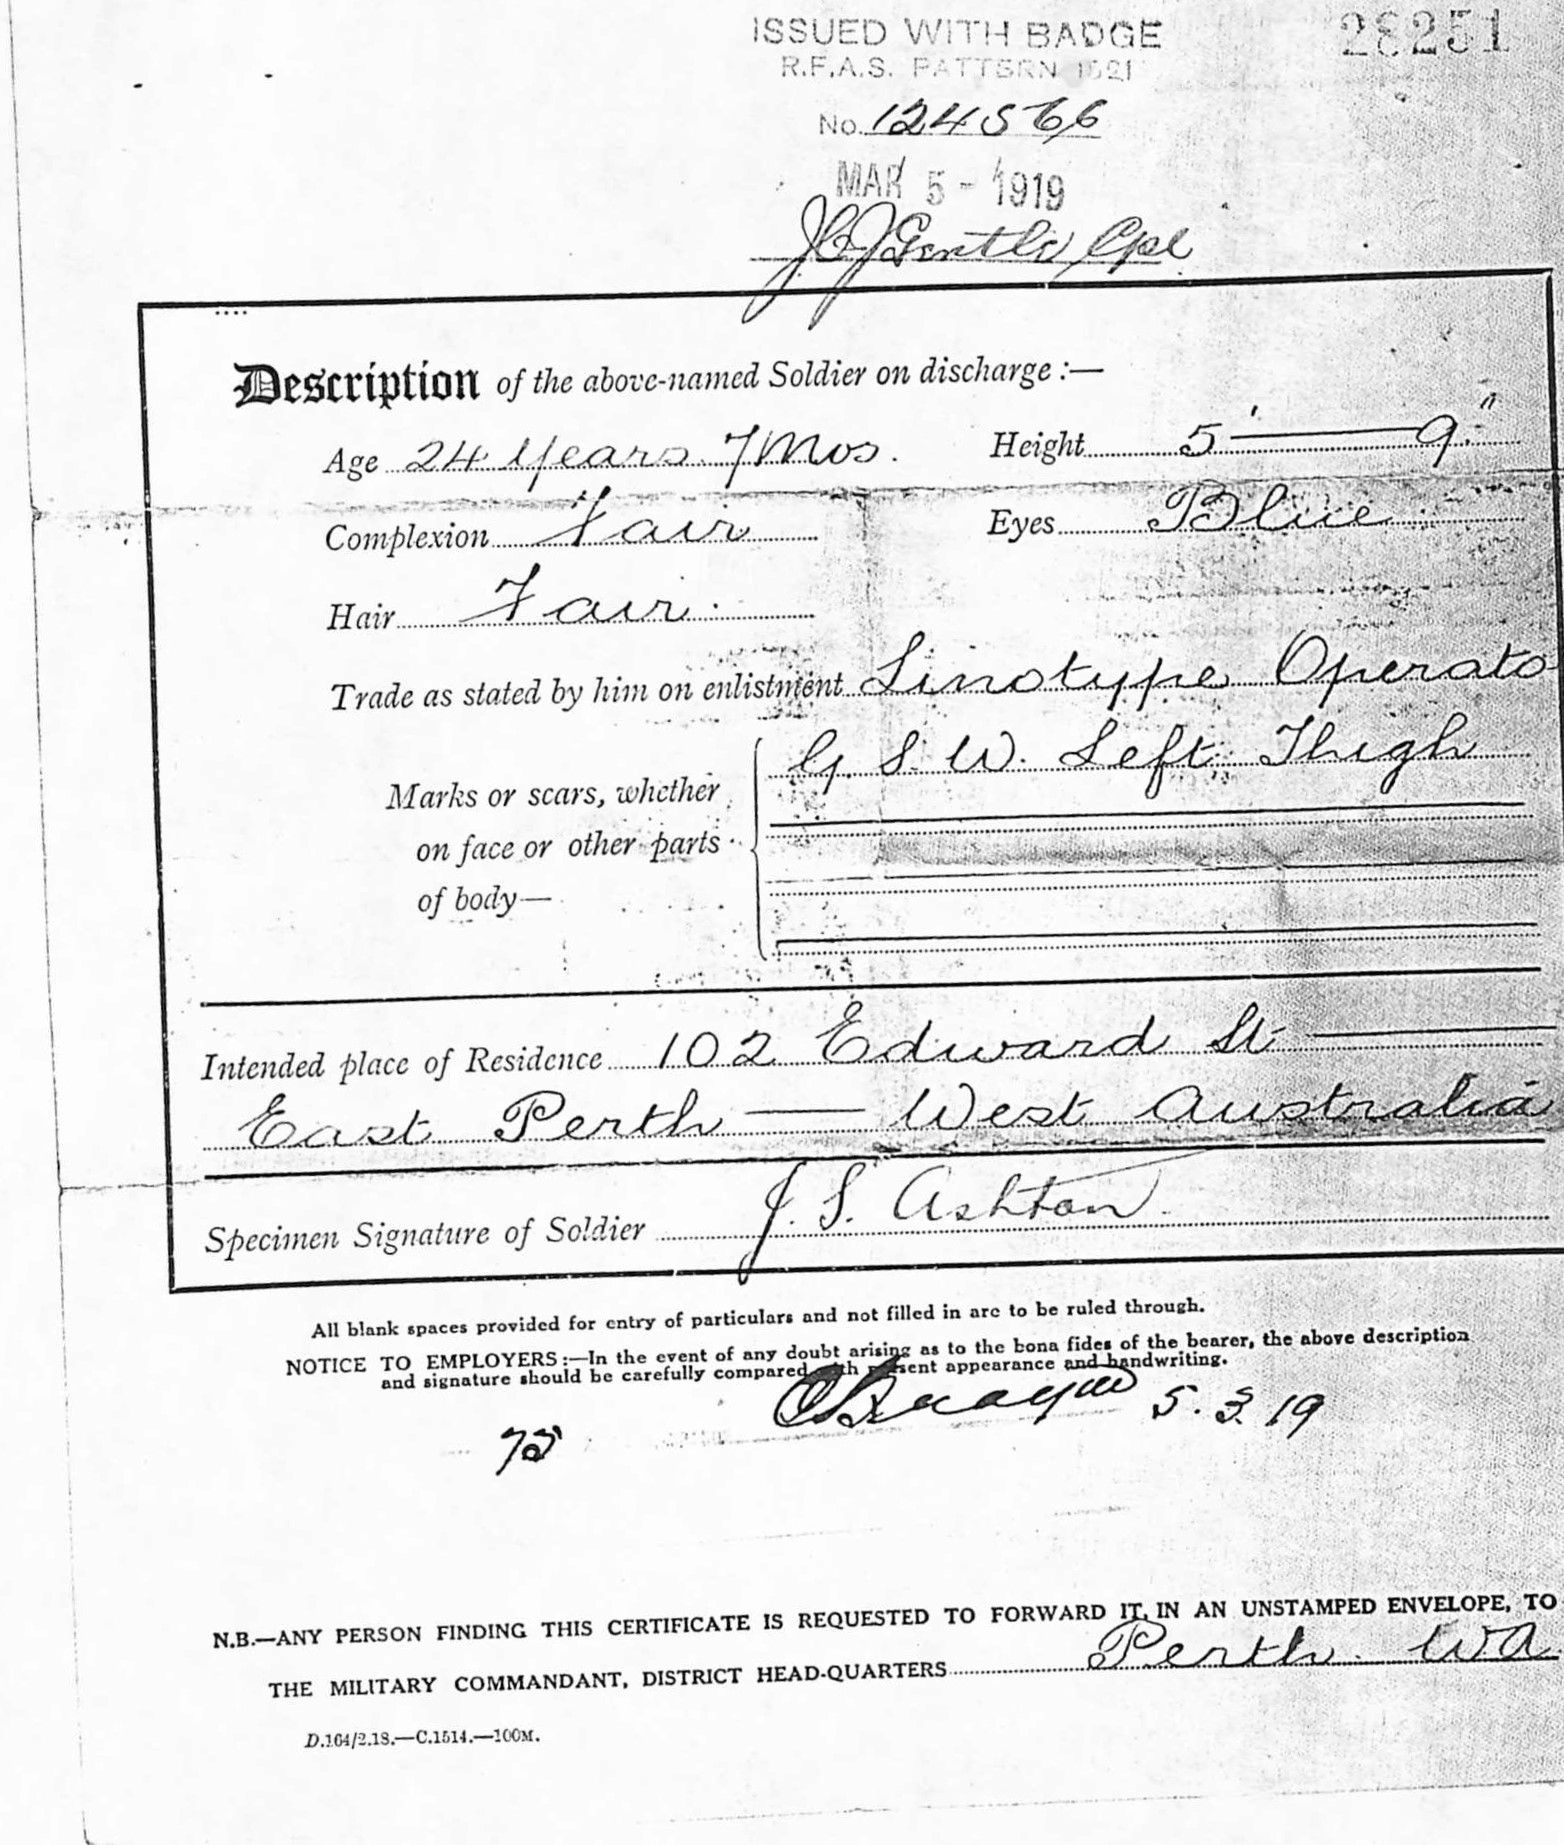 28251
ISSUED WITH BADGE
R.F.A.S. PATTERN
No. 124566
MAR 5 - 1919
Cpl
Description of the above-named Soldier on discharge :—
Age 24 Years 7 Mos. Height 5' — 9"
Complexion Fair Eyes Blue
Hair Fair
Trade as stated by him on enlistment Linotype Operato
Marks or scars, whether
on face or other parts
of body—
G. S. W. Left Thigh
Intended place of Residence 102 Edward St —
East Perth — West Australia
Specimen Signature of Soldier J. S. Ashton
All blank spaces provided for entry of particulars and not filled in are to be ruled through.
NOTICE TO EMPLOYERS :—In the event of any doubt arising as to the bona fides of the bearer, the above description
and signature should be carefully compared with present appearance and handwriting.
5. 3. 19
75
N.B.—ANY PERSON FINDING THIS CERTIFICATE IS REQUESTED TO FORWARD IT, IN AN UNSTAMPED ENVELOPE, TO
THE MILITARY COMMANDANT, DISTRICT HEAD-QUARTERS Perth. WA
D.164/2.18.—C.1514.—100M.